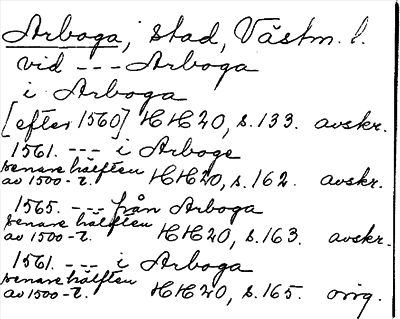 Arboga, stad, Västm. l.
vid --- Arboga
i Arboga
[efter 1560] HH20, s. 133. avskr.
1561. --- i Arboge
senare hälften
av 1500-t. HH20, s. 162. avskr.
1565. --- från Arboga
senare hälften
av 1500-t. HH20, s. 163. avskr.
1561. --- i Arboga
senare hälften
av 1500-t. HH20, s. 165. orig.